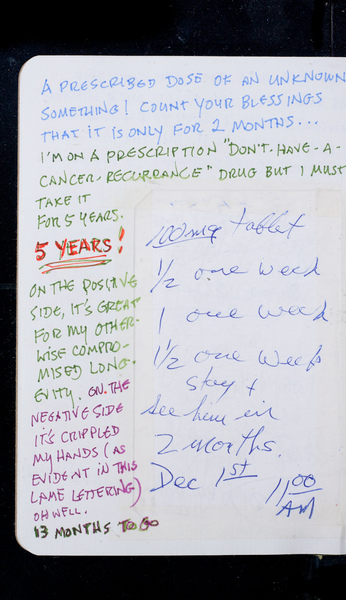 A PRESCRIBED DOSE OF AN UNKNOWN
SOMETHING! COUNT YOUR BLESSINGS
THAT IT IS ONLY FOR 2 MONTHS...
I'M ON A PRESCRIPTION "DON'T-HAVE-A-
CANCER-RECURRANCE" DRUG BUT I MUST
TAKE IT
FOR 5 YEARS.
5 YEARS!
ON THE POSITIVE
SIDE, IT'S GREAT
FOR MY OTHER-
WISE COMPRO-
MISED LONG-
EVITY. ON THE
NEGATIVE SIDE
IT'S CRIPPLED
MY HANDS (AS
EVIDENT IN THIS
LAME LETTERING)
OH WELL.
13 MONTHS TO GO
100mg tablet
1/2 one week
1 one week
1 1/2 one week
stay +
see him in
2 months.
Dec 1st
11:00
AM